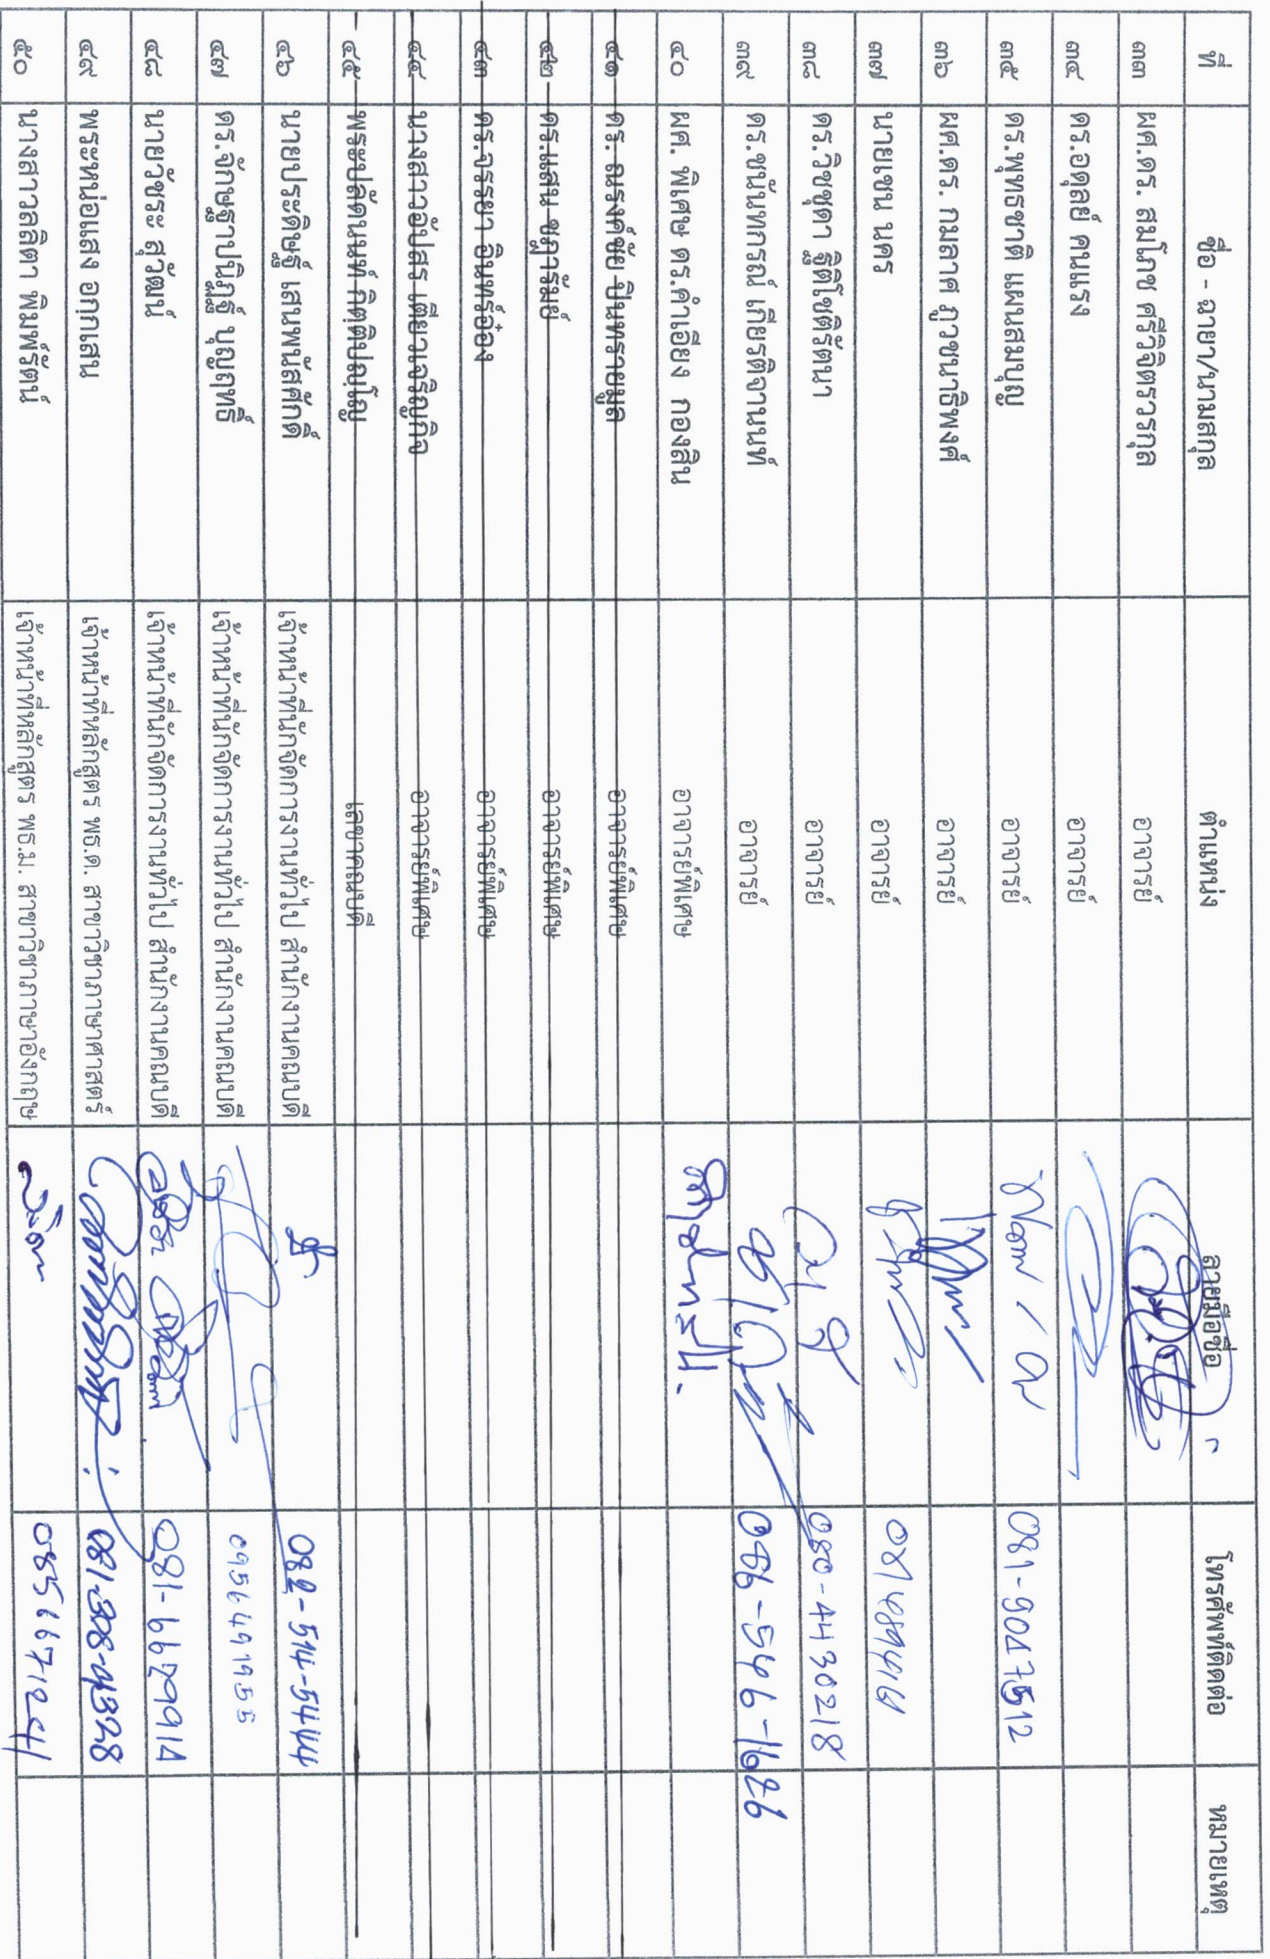 ที่ ชื่อ - ฉายา/นามสกุล ตำแหน่ง ลายมือชื่อ โทรศัพท์ติดต่อ หมายเหตุ
๓๓ ผศ.ดร. สมโภช ศรีวิจิตรวรกุล อาจารย์
๓๔ ดร.อดุลย์ คนแรง อาจารย์
๓๕ ดร.พุทธชาติ แผนสมบุญ อาจารย์ 081-9047512
๓๖ ผศ.ดร. กมลาศ ภูวชนาธิพงศ์ อาจารย์
๓๗ นายเชน นคร อาจารย์
๓๘ ดร.วิชชุดา ฐิติโชติรัตนา อาจารย์ 080-4430218
๓๙ ดร.ชนันทกรณ์ เกียรติจานนท์ อาจารย์ 086-546-1626
๔๐ ผศ. พิเศษ ดร.คำเอียง กองสิน อาจารย์พิเศษ
๔๑ ดร. ณรงค์ชัย ปินทรายมูล อาจารย์พิเศษ
๔๒ ดร.แสน ชฎารัมย์ อาจารย์พิเศษ
๔๓ ดร.จรรยา อินทร์อ๋อง อาจารย์พิเศษ
๔๔ นางสาวอัปสร เตียวเจริญกิจ อาจารย์พิเศษ
๔๕ พระปลัดนนท์ กิตฺติปญฺโญ เลขาคณบดี
๔๖ นายประดิษฐ์ เสนพนัสศักดิ์ เจ้าหน้าที่นักจัดการงานทั่วไป สำนักงานคณบดี 082-514-5444
๔๗ ดร.จักษฐาปนิภฐ์ บุญฤทธิ์ เจ้าหน้าที่นักจัดการงานทั่วไป สำนักงานคณบดี 0956491955
๔๘ นายวัชระ สุวัฒน์ เจ้าหน้าที่นักจัดการงานทั่วไป สำนักงานคณบดี
๔๙ พระหน่อแสง อคฺคเสน เจ้าหน้าที่หลักสูตร พธ.ด. สาขาวิชาภาษาศาสตร์ 081-308-4328
๕๐ นางสาวลลิตา พิมพ์รัตน์ เจ้าหน้าที่หลักสูตร พธ.ม. สาขาวิชาภาษาอังกฤษ 0855667124